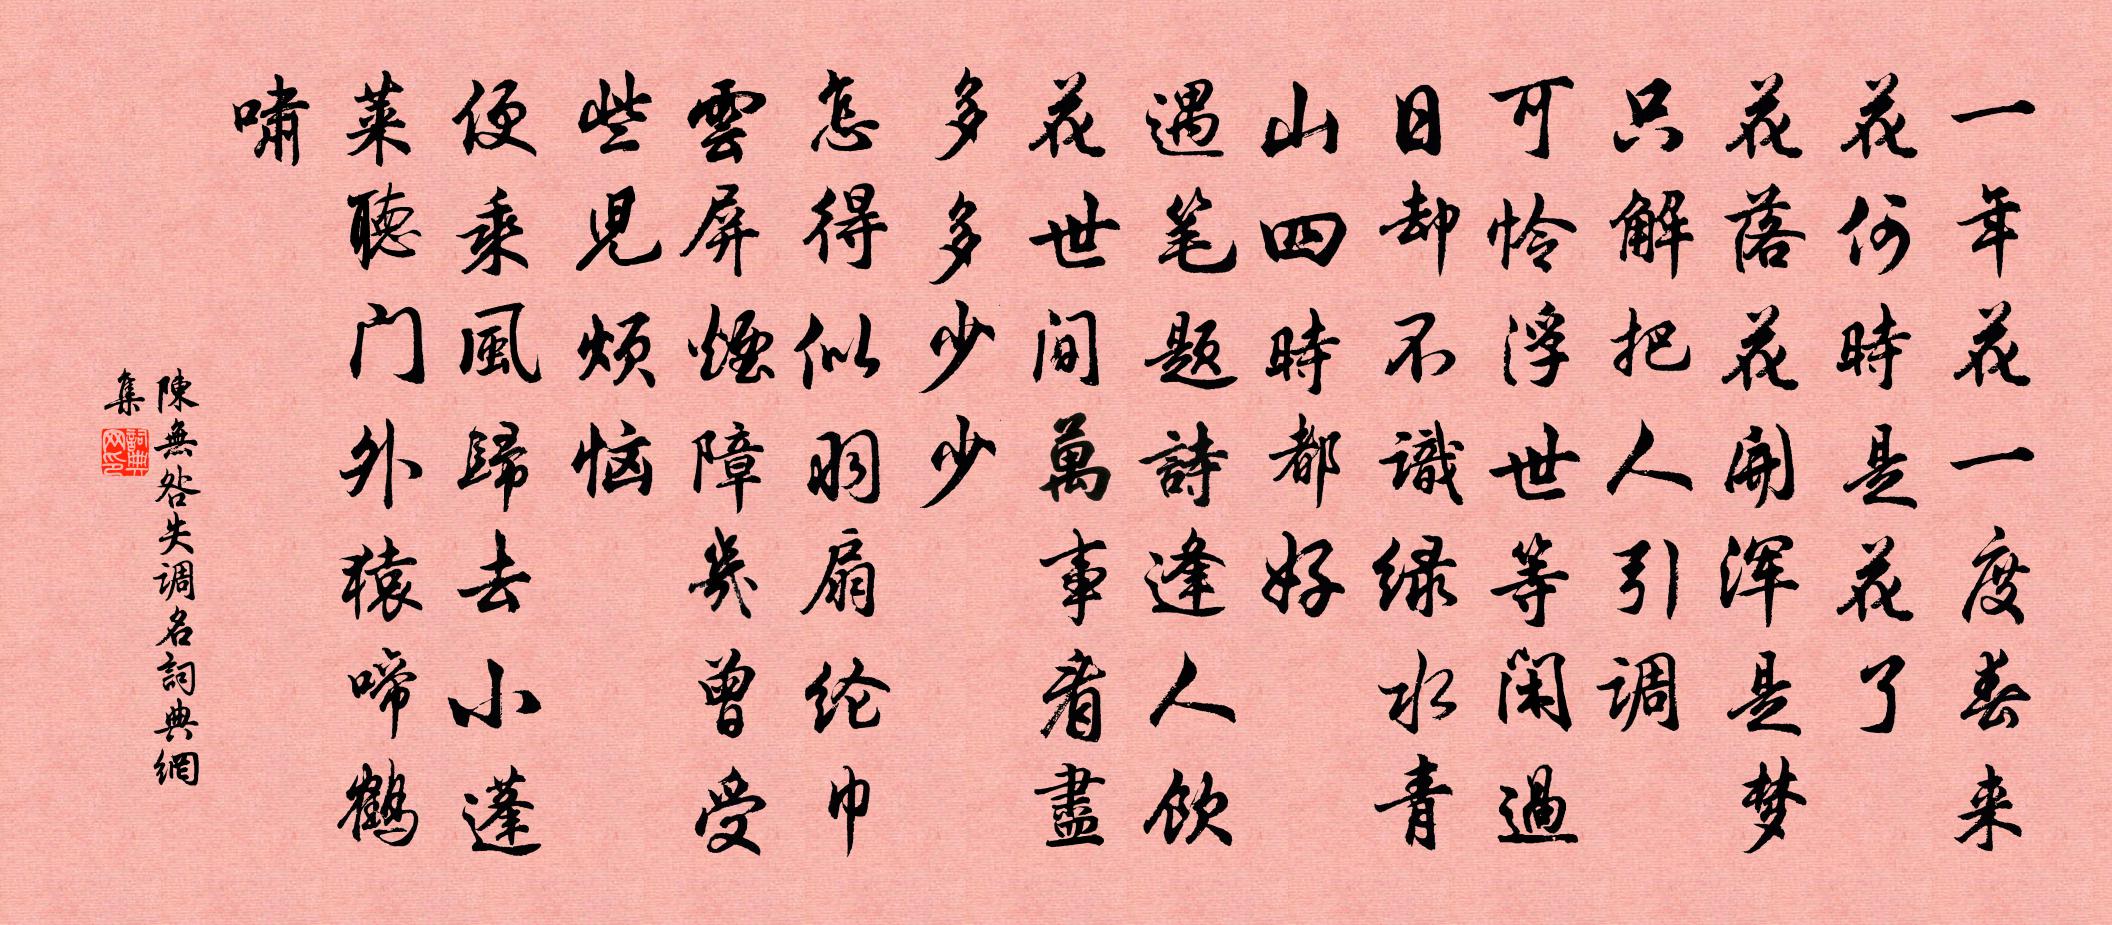 一年花一度春来
花何時是花了
花落花開浑是梦
只解把人引调
可怜浮世等闲過
日却不識绿水青
山四時都好
遇笔题詩逢人飲
花世间萬事看盡
多多少少
怎得似羽扇纶巾
雲屏煙障幾曾受
些児烦恼
便乘風歸去小蓬
莱聽门外猿啼鶴
嘯
陳無咎失调名詞典網
集
詞典网印